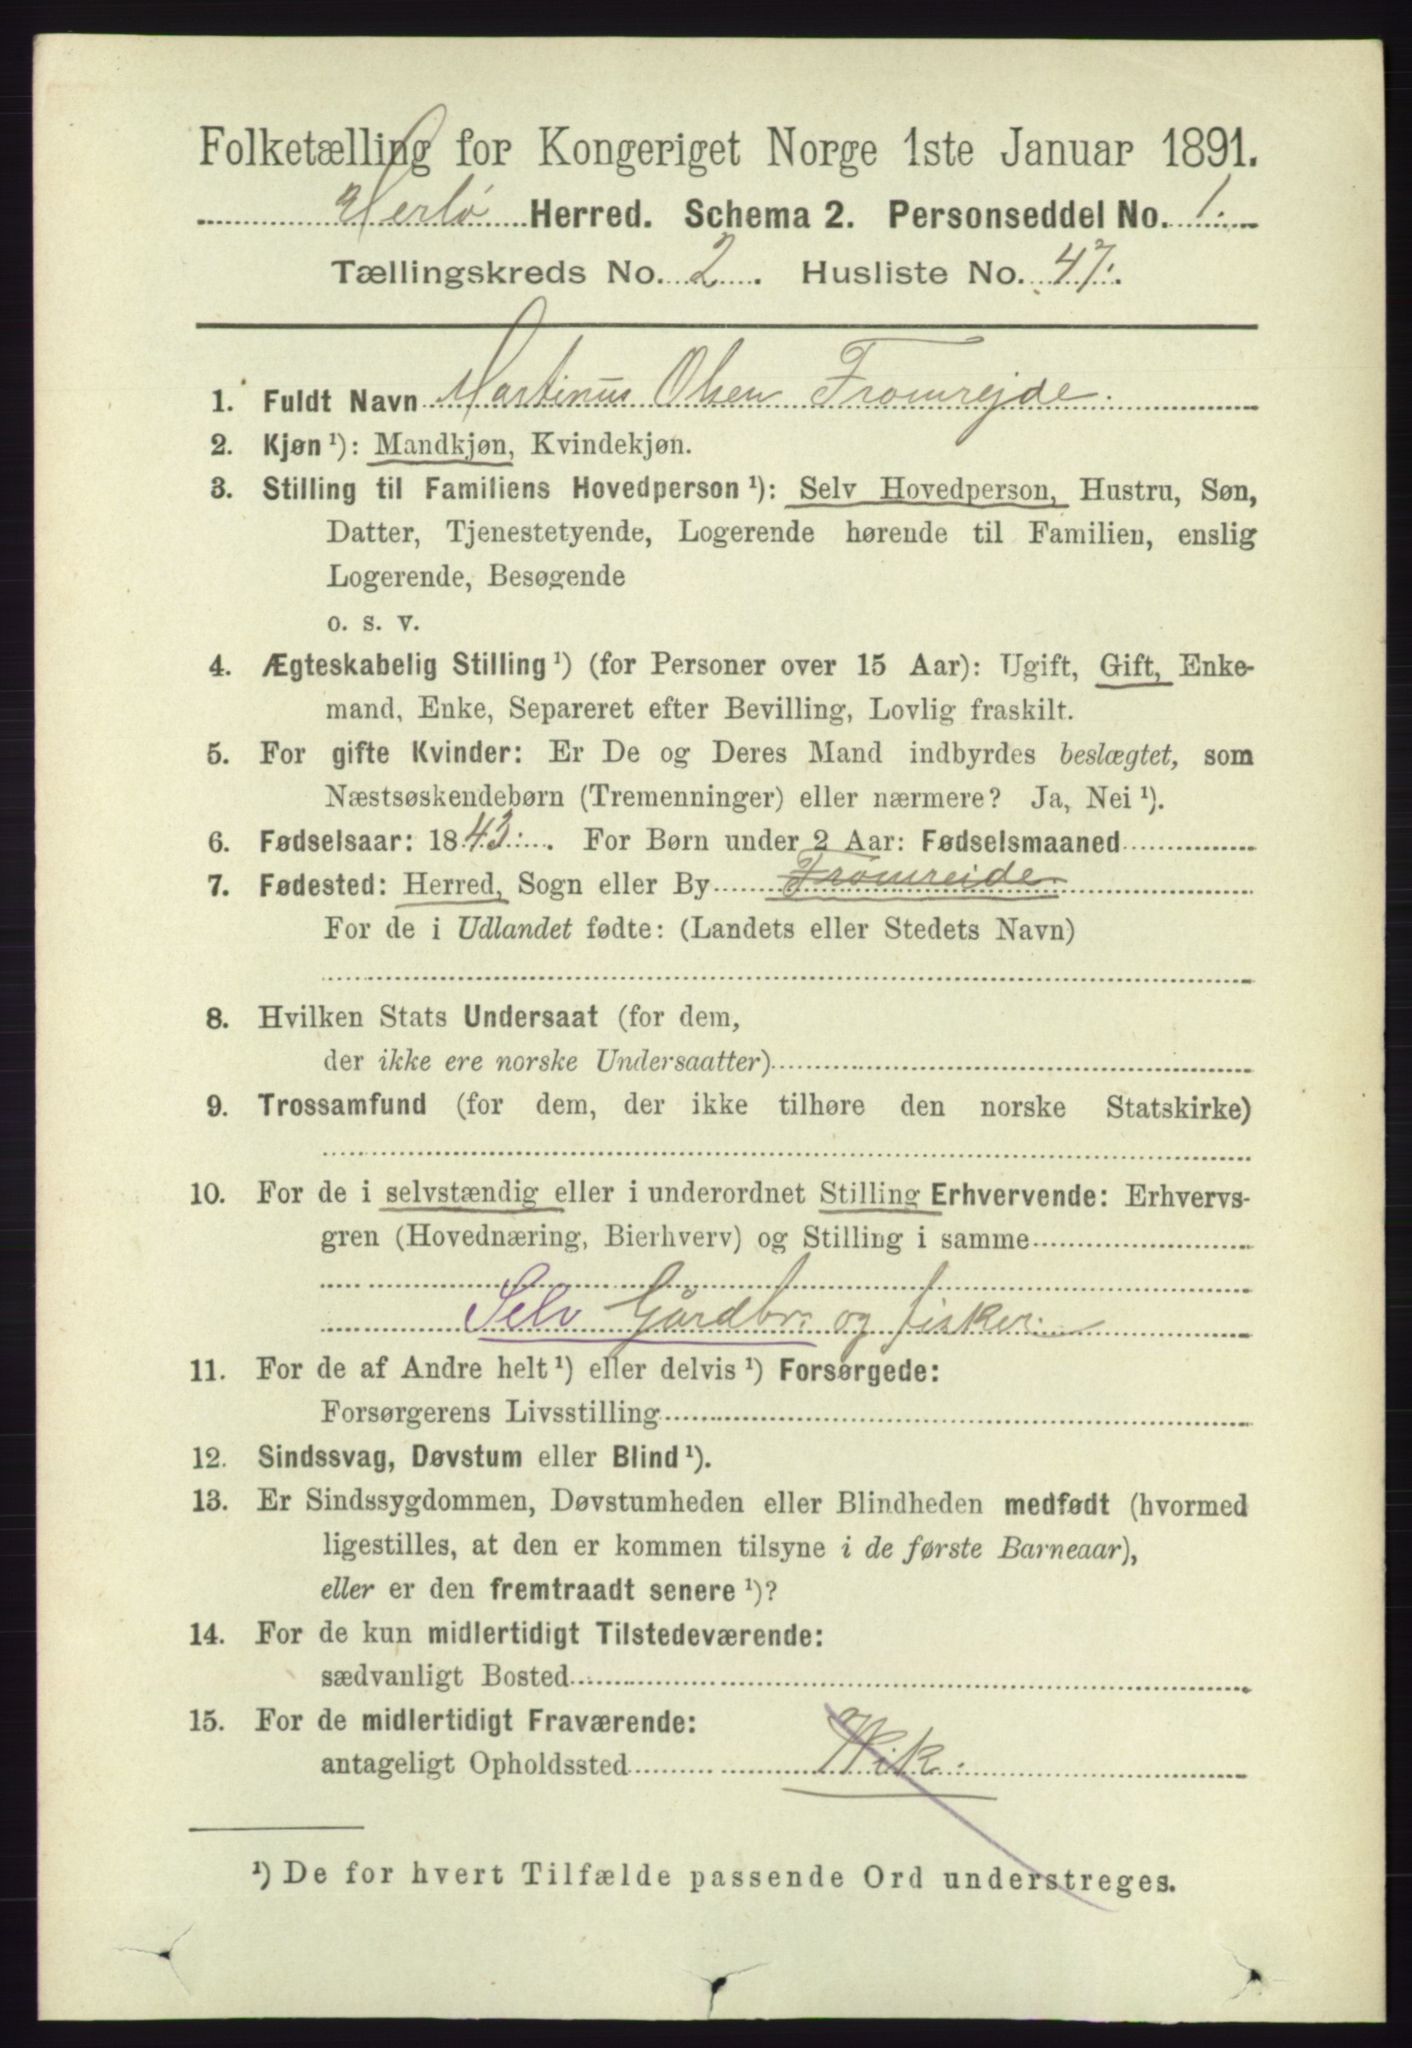 Folketælling for Kongeriget Norge 1ste Januar 1891.
Herlø Herred. Schema 2. Personseddel No. 1.
Tællingskreds No. 2. Husliste No. 47.
1. Fuldt Navn Martinus Olsen Fromrejde.
2. Kjøn ¹): Mandkjøn, Kvindekjøn.
3. Stilling til Familiens Hovedperson ¹): Selv Hovedperson, Hustru, Søn,
Datter, Tjenestetyende, Logerende hørende til Familien, enslig
Logerende, Besøgende
o. s. v.
4. Ægteskabelig Stilling ¹) (for Personer over 15 Aar): Ugift, Gift, Enke-
mand, Enke, Separeret efter Bevilling, Lovlig fraskilt.
5. For gifte Kvinder: Er De og Deres Mand indbyrdes beslægtet, som
Næstsøskendebørn (Tremenninger) eller nærmere? Ja, Nei ¹).
6. Fødselsaar: 1843. For Børn under 2 Aar: Fødselsmaaned
7. Fødested: Herred, Sogn eller By Fromreide.
For de i Udlandet fødte: (Landets eller Stedets Navn)
8. Hvilken Stats Undersaat (for dem,
der ikke ere norske Undersaatter)
9. Trossamfund (for dem, der ikke tilhøre den norske Statskirke)
10. For de i selvstændig eller i underordnet Stilling Erhvervende: Erhvervs-
gren (Hovednæring, Bierhverv) og Stilling i samme
Selv Gårdbr. og fisker.
11. For de af Andre helt ¹) eller delvis ¹) Forsørgede:
Forsørgerens Livsstilling
12. Sindssvag, Døvstum eller Blind ¹).
13. Er Sindssygdommen, Døvstumheden eller Blindheden medfødt (hvormed
ligestilles, at den er kommen tilsyne i de første Barneaar),
eller er den fremtraadt senere ¹)?
14. For de kun midlertidigt Tilstedeværende:
sædvanligt Bosted
15. For de midlertidigt Fraværende:
antageligt Opholdssted Wik.
¹) De for hvert Tilfælde passende Ord understreges.